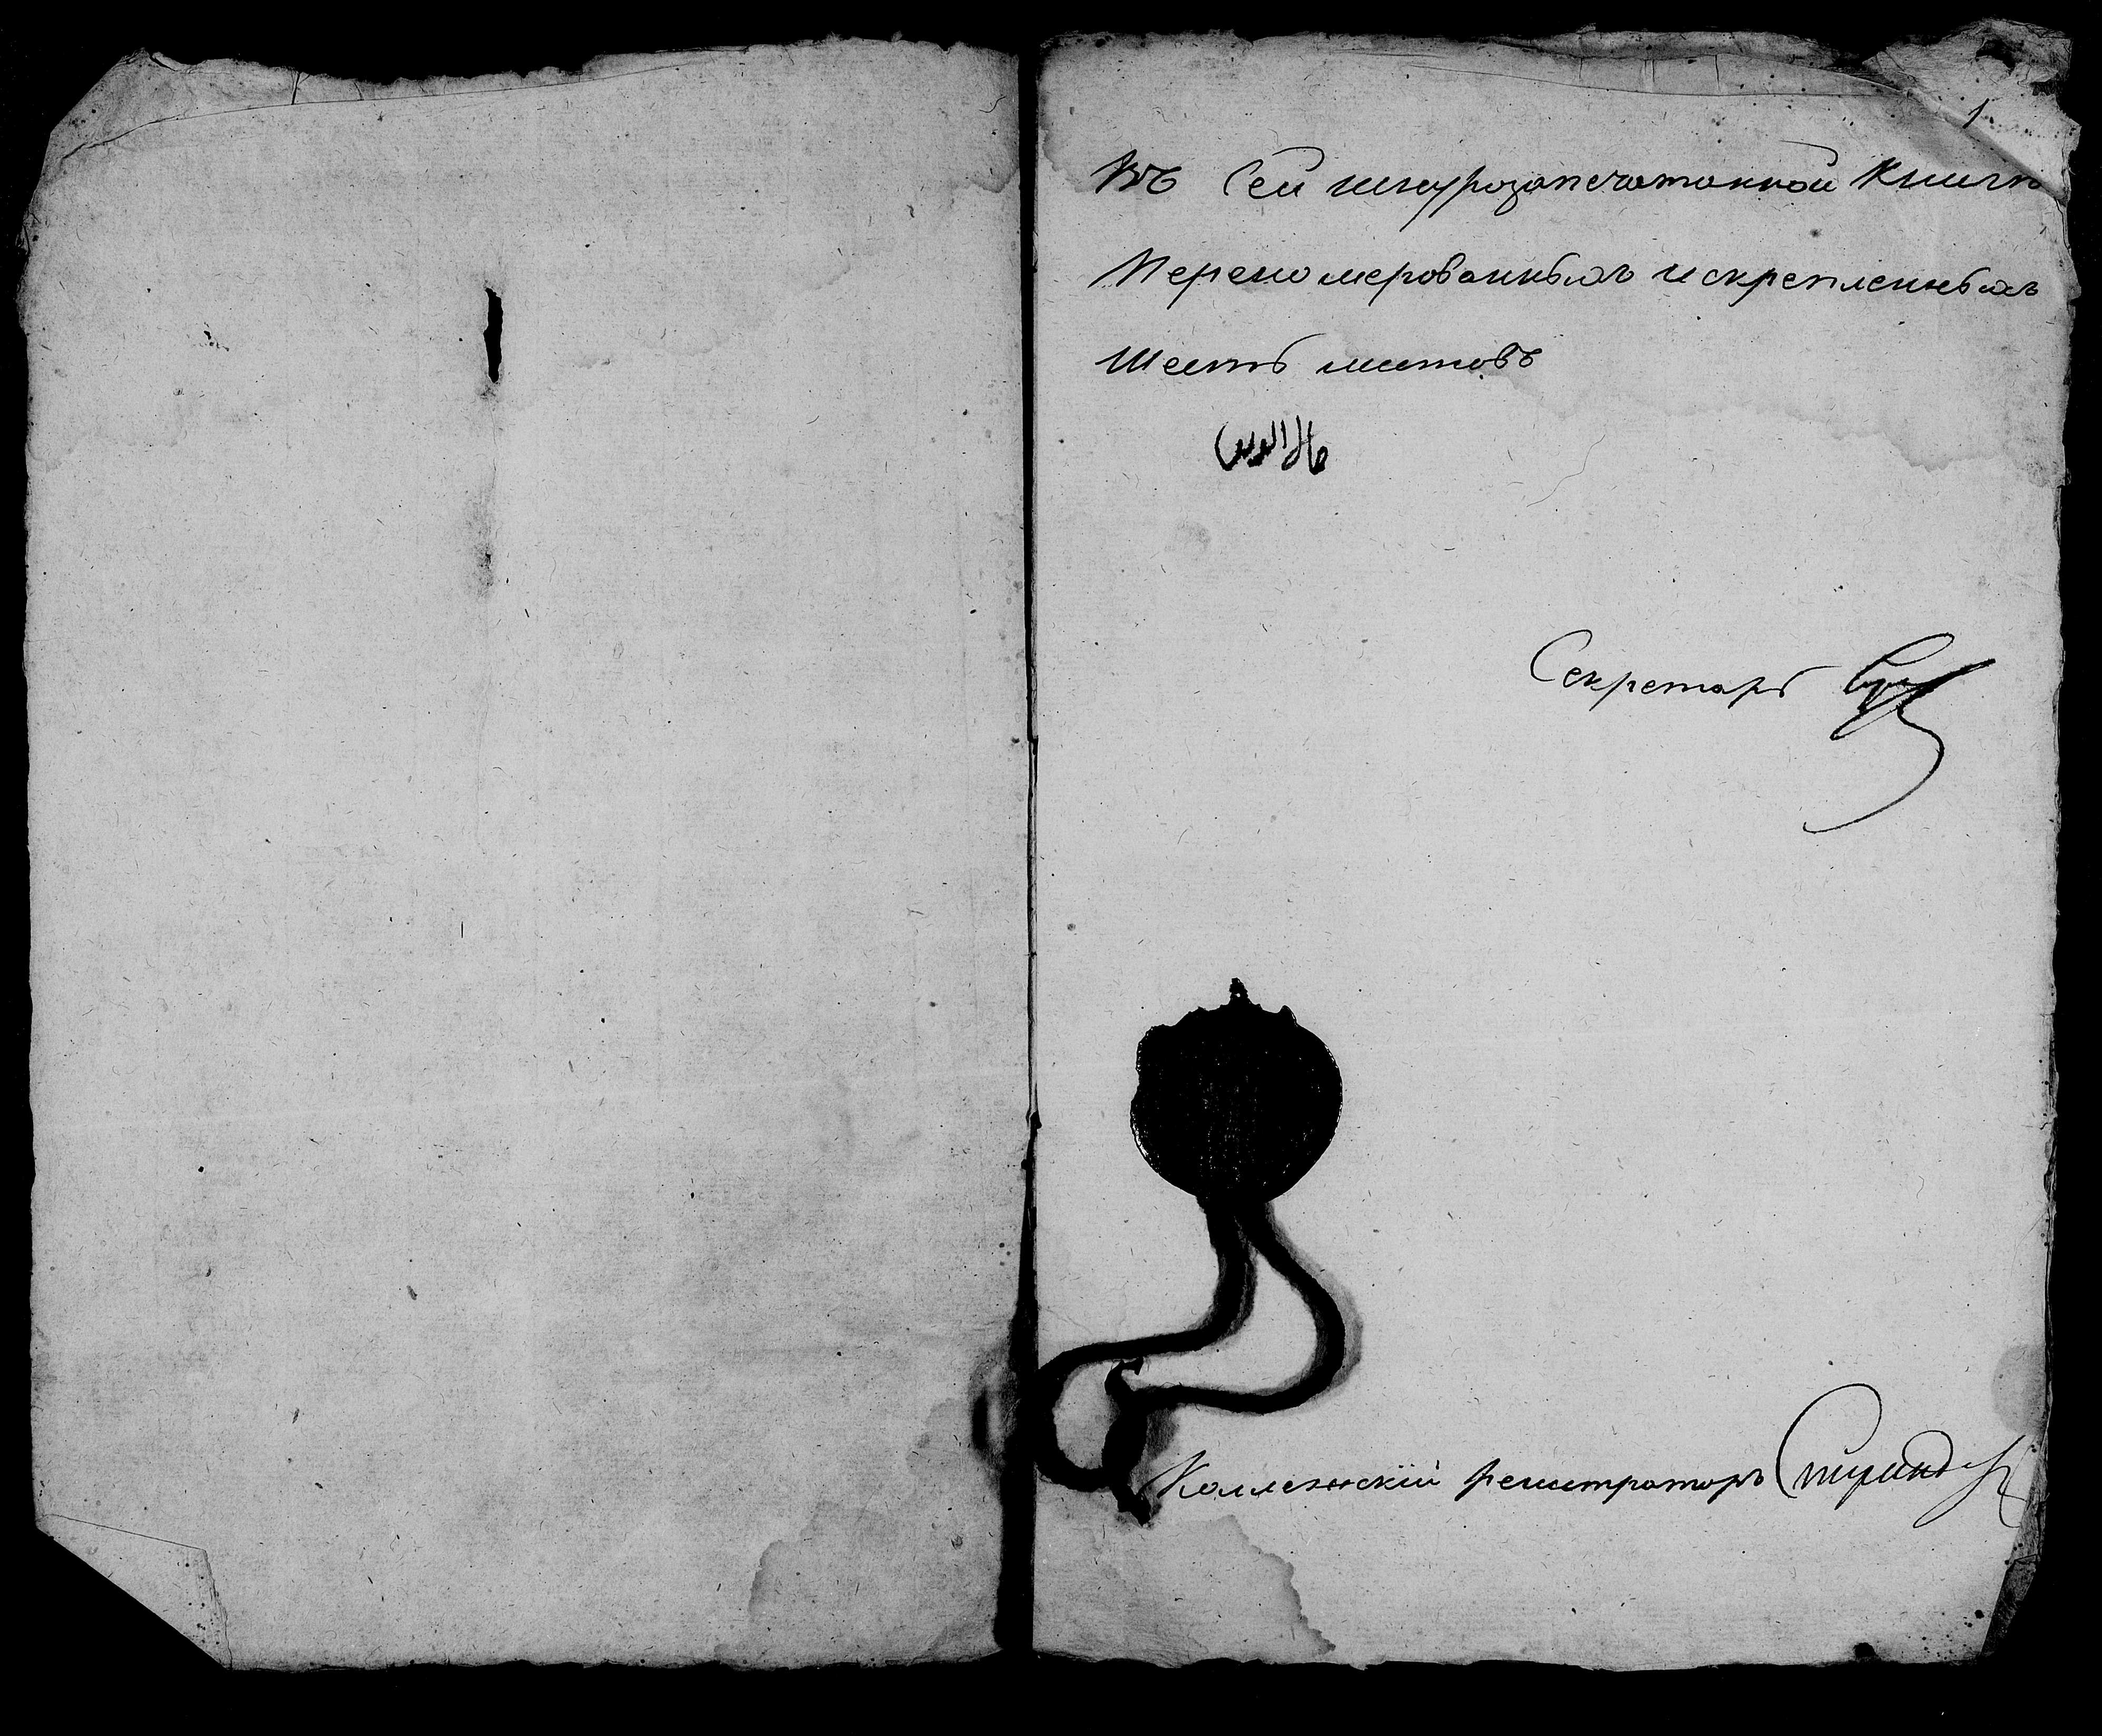 1
Въ Сей шнурозапечатанной Книгѣ
Перенумерованныхъ и скрепленныхъ
Шесть листовъ
Секретарь
Коллежскій регистраторъ